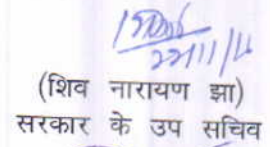 22/11/11
(शिव नारायण झा)
सरकार के उप सचिव